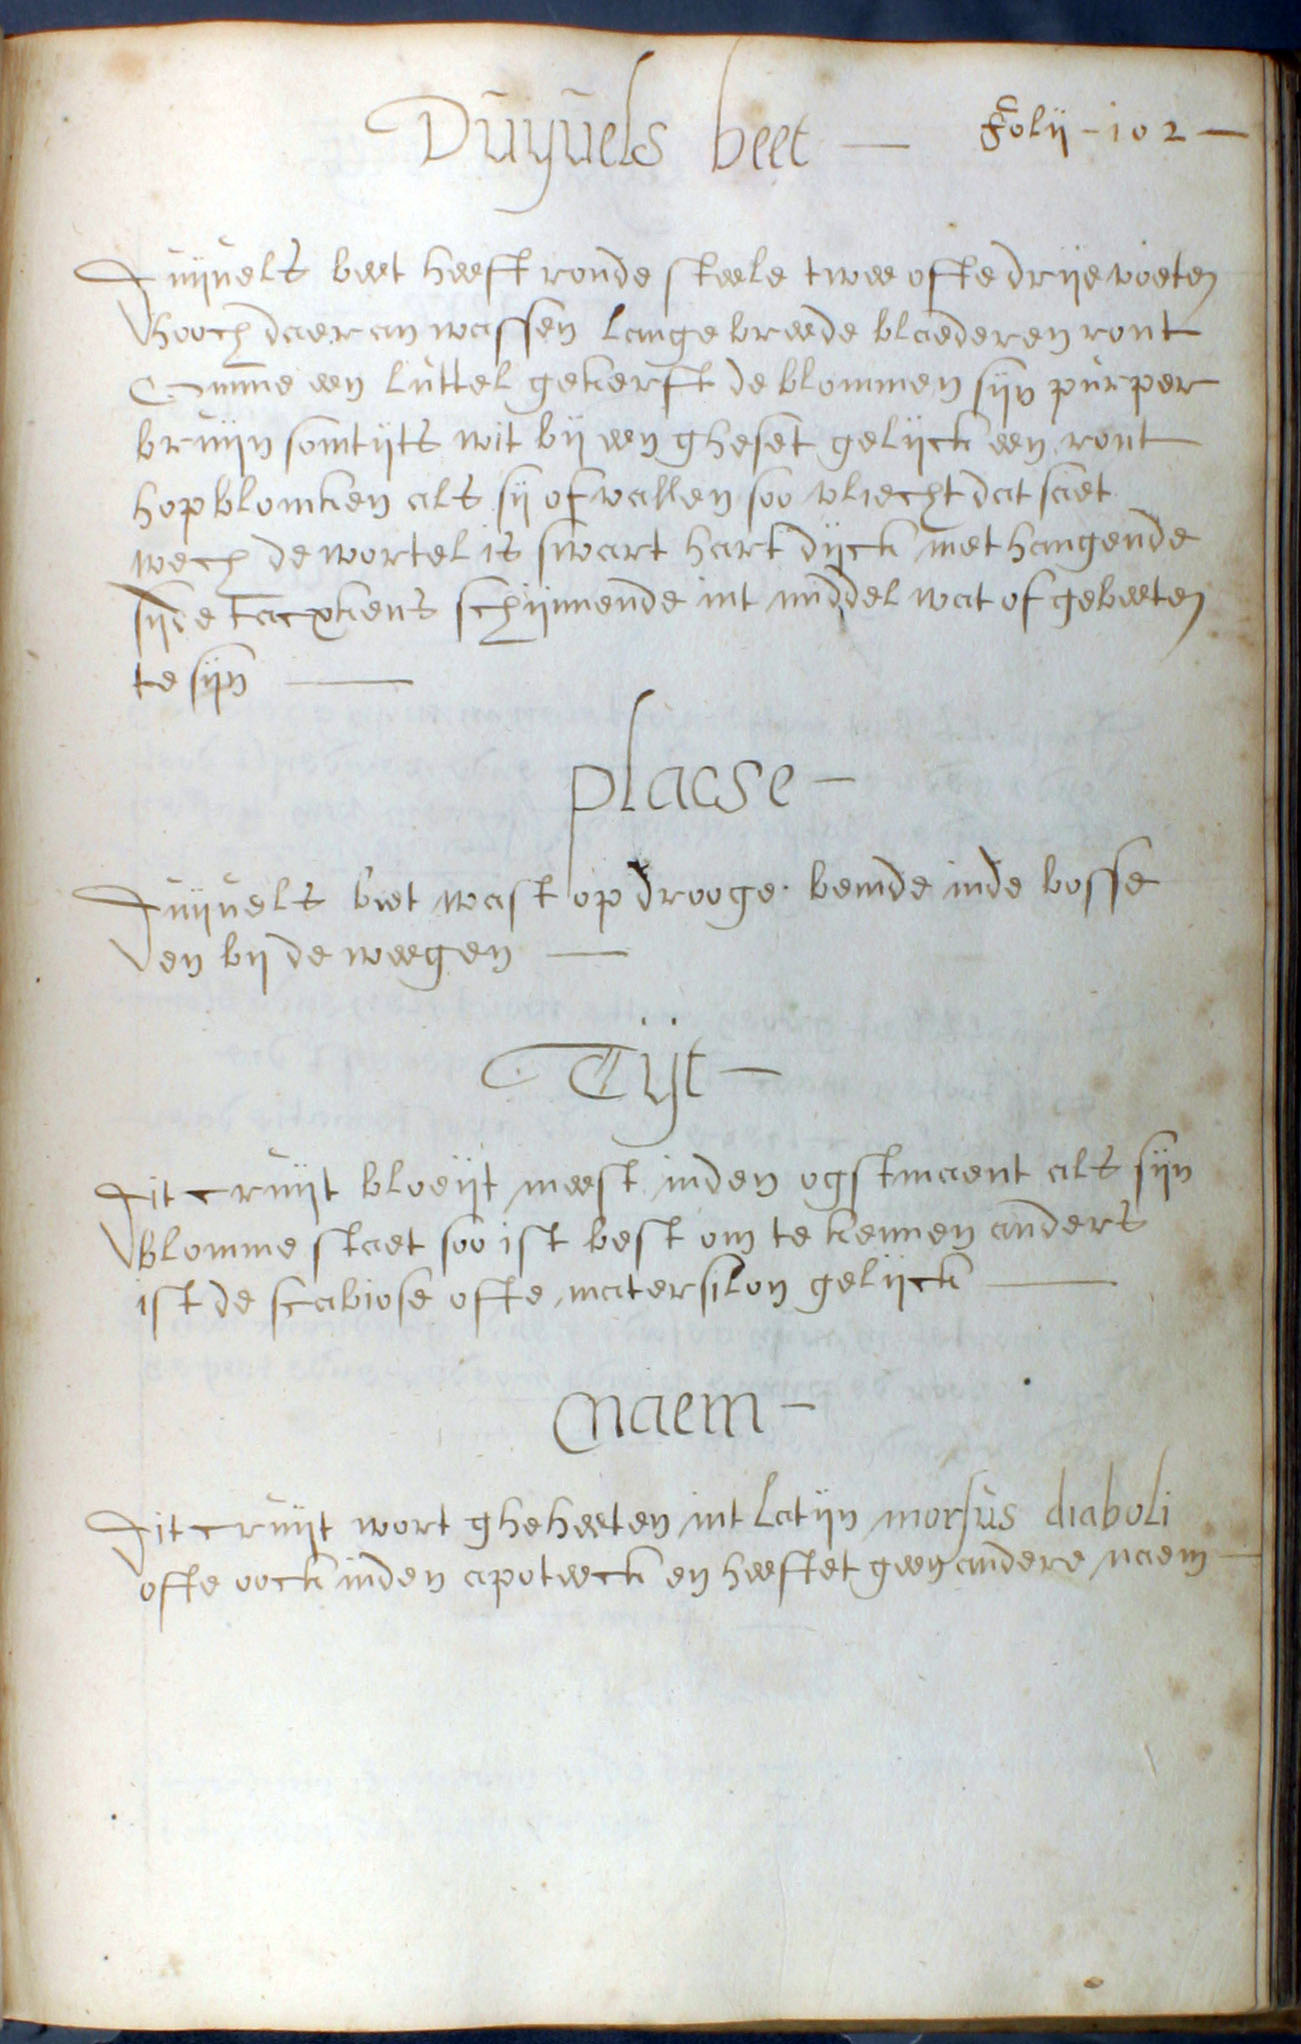 Duyuels beet —
Folij - 102 —
Duijuels beet heeft ronde steele twee ofte drije voeten
hooch daer an wassen lange breede blaederen ront
omme een luttel gekerft de blommen sijn purper
bruijn somtijts wit bij een gheset gelijck een ront
hopblomken als sij of vallen soo vliecht dat saet
wech de wortel is swart hart dijck met hangende
sijde tacxkens schijnnende int middel wat of gebeeten
te sijn —
placse —
Duijuels biet wast op drooge bemde inde bosse
en bij de weegen —
Tijt —
Dit cruijt bloeijt meest inden ogstmaent als sijn
blomme staet soo ist best om te kennen anders
ist de scabiose ofte matersilon gelijck —
Naem —
Dit cruijt wort gheheeten int Latijn morsus diaboli
ofte oock inden apoteeck en heeftet geen andere naem —